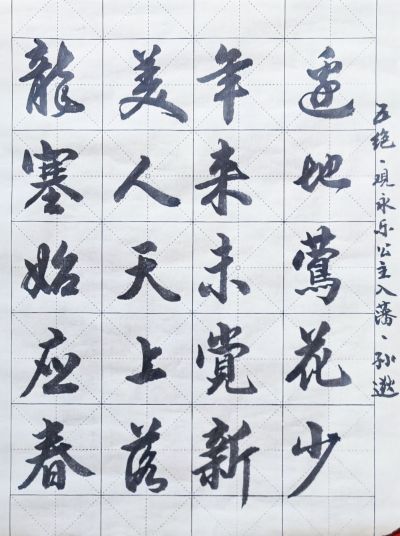 五绝·观永乐公主入藩·孙逖
邊地鶯花少
年来未覺新
美人天上落
龍塞始应春